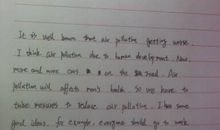 It is well known that air pollution getting worse.
I think air pollution due to human development. Now,
more and more cars on the road. Air
pollution will affects men's health. So we have to
take measures to reduce air pollution. I have some
good ideas, for example, everyone should go to work